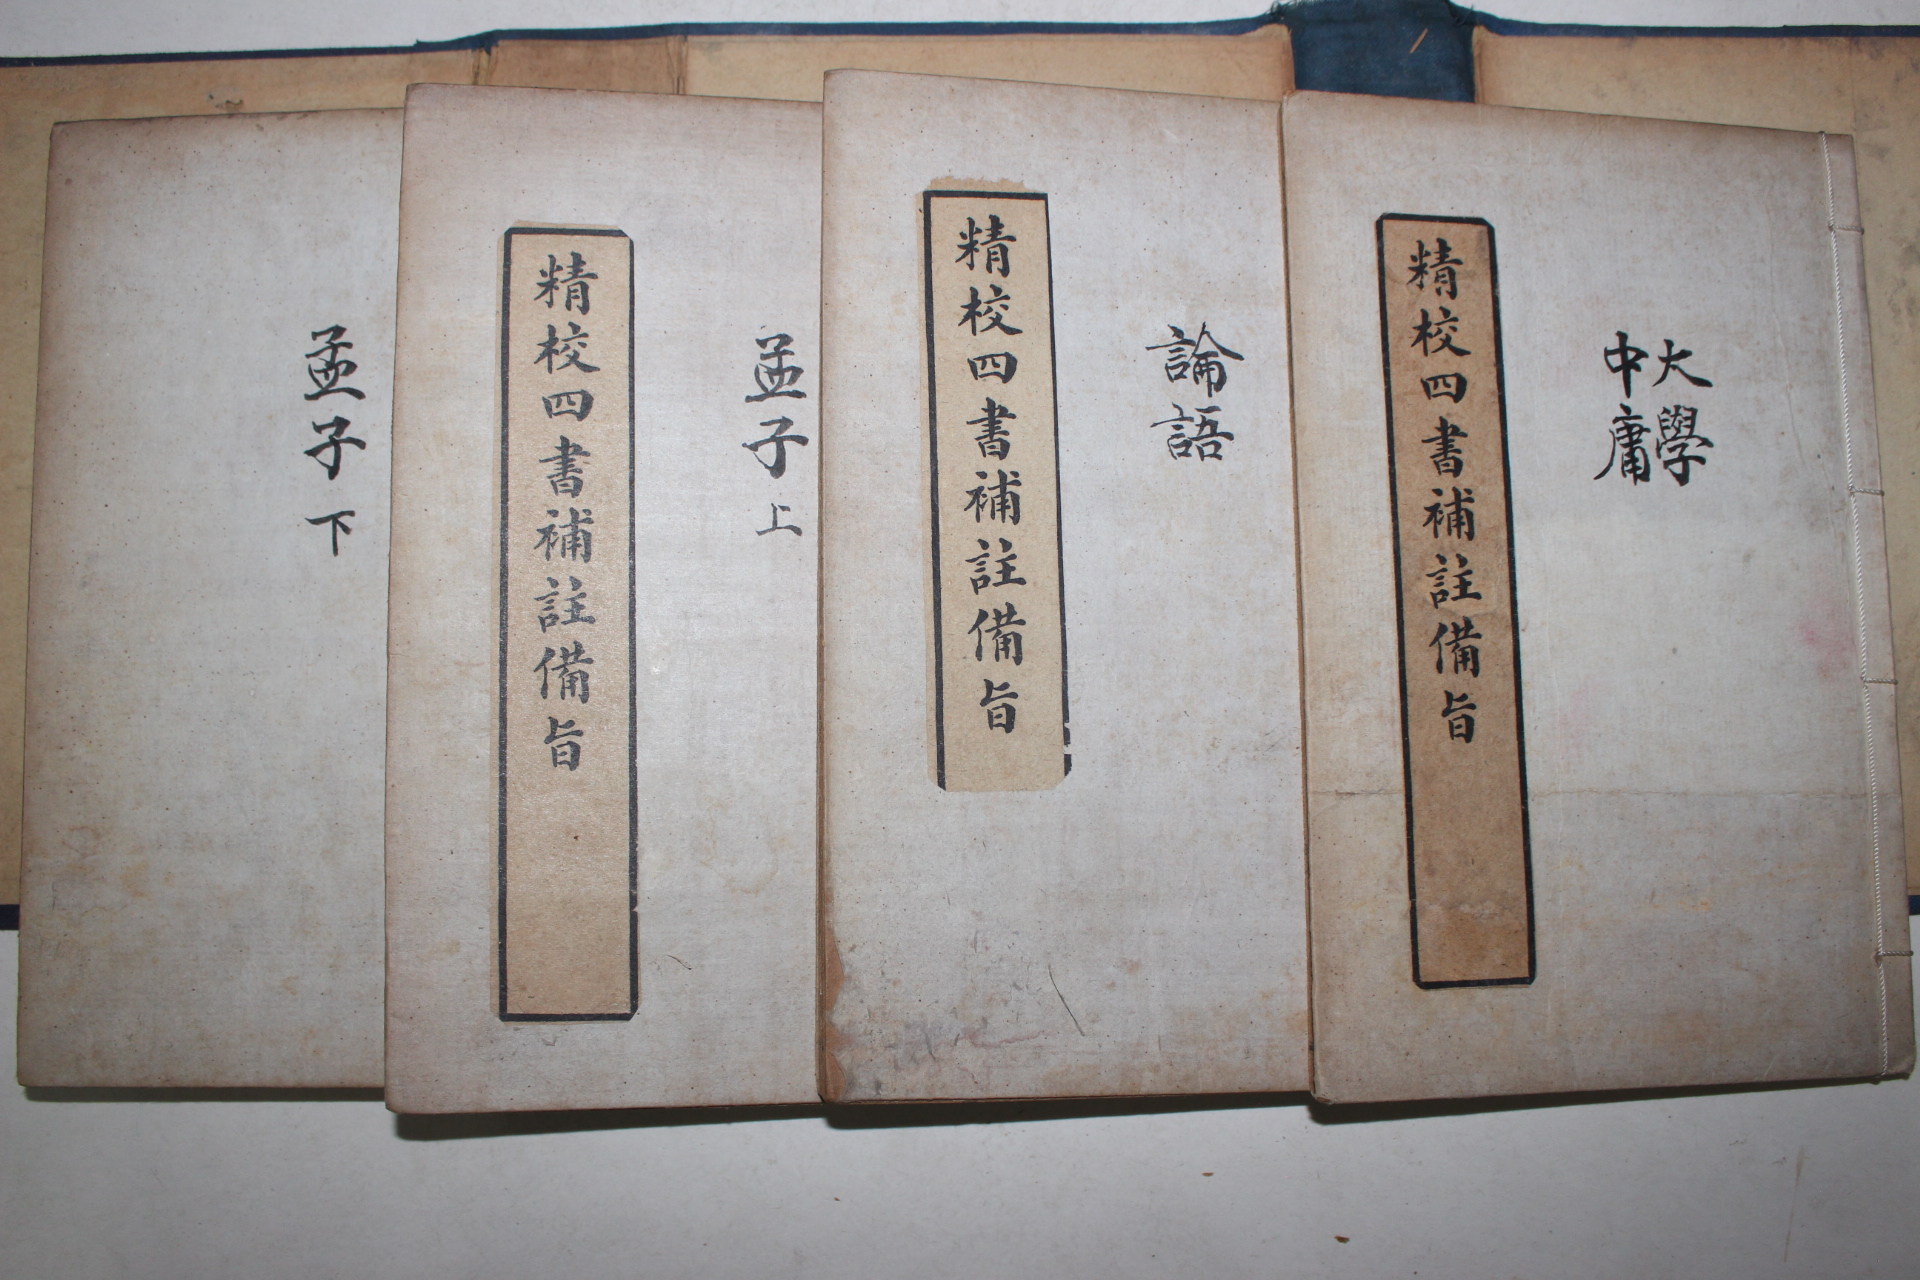 大學
中庸
精校四書補註備旨
論語
精校四書補註備旨
孟子上
精校四書補註備旨
孟子下